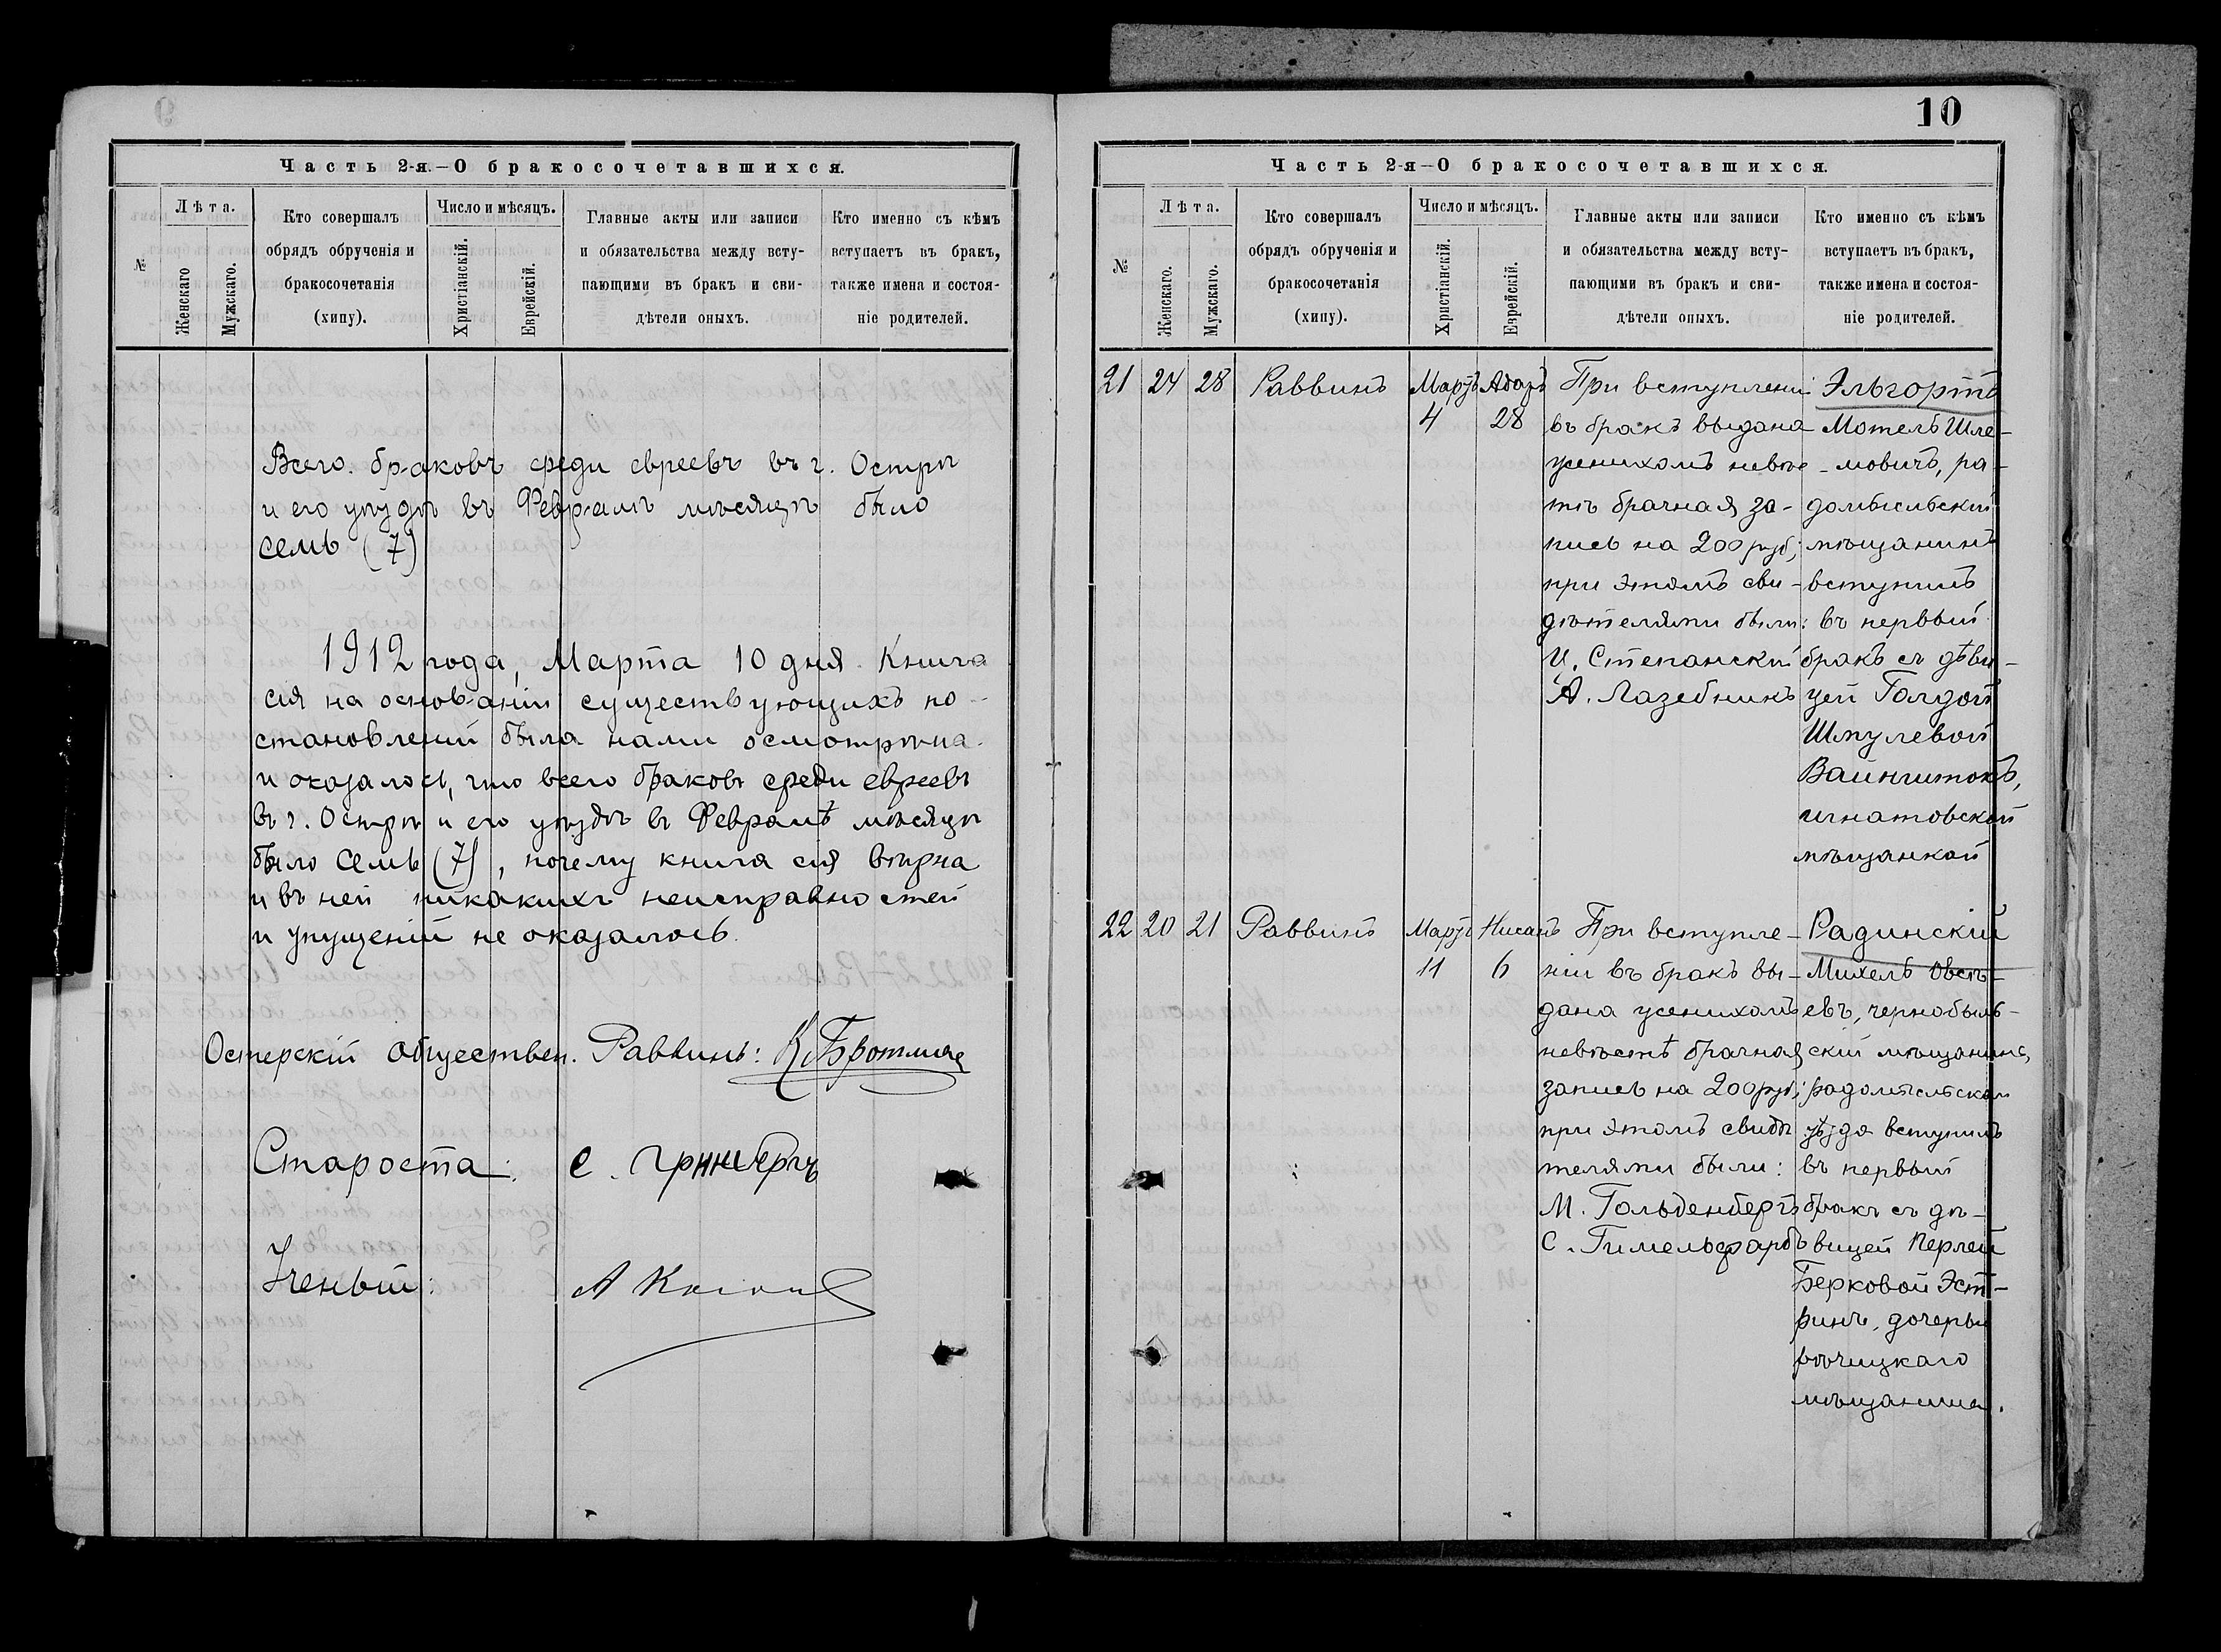 Часть 2-я.—О бракосочетавшихся.
№
Лѣта.
Женскаго
Мужскаго.
Кто совершалъ
обрядъ обрученія и
бракосочетанія
(хипу).
Число и мѣсяцъ.
Христіанскій.
Еврейскій.
Главные акты или записи
и обязательства между всту-
пающими въ бракъ и сви-
дѣтели оныхъ.
Кто именно съ кѣмъ
вступаетъ въ бракъ,
также имена и состоя-
ніе родителей.
Всего браковъ среди евреевъ въ г. Острѣ
и его уѣздѣ въ Февралѣ мѣсяцѣ было
семь (7)
1912 года, Марта 10 дня. Книга
сія на основаніи существующихъ по-
становленій была нами осмотрѣна
и оказалось, что всего браковъ среди евреевъ
въ г. Острѣ и его уѣздѣ въ Февралѣ мѣсяцѣ
было семь (7), почему книга сія вѣрна
и въ ней никакихъ неисправностей
и упущеній не оказалось.
Остерскій обществен. Раввинъ:
Староста: С. Гринбергъ
Ученый: А
10
Часть 2-я—О бракосочетавшихся.
№
Лѣта.
Женскаго.
Мужскаго.
Кто совершалъ
обрядъ обрученія и
бракосочетанія
(хипу).
Число и мѣсяцъ.
Христіанскій.
Еврейскій.
Главные акты или записи
и обязательства между всту-
пающими въ бракъ и сви-
дѣтели оныхъ.
Кто именно съ кѣмъ
вступаетъ въ бракъ,
также имена и состоя-
ніе родителей.
21 24 28 Раввинъ
Мартъ
4
Адаръ
28
При вступлени
въ бракъ выдана
женихомъ невѣс-
тѣ брачная за-
пись на 200 руб;
при этомъ сви-
дѣтелями были:
И. Степанскій
А. Лазебникъ
Эльгортъ
Мотель Шле-
мовичъ, ра-
домысльскій
мѣщанинъ
вступилъ
въ первый
бракъ съ дѣви-
цей Голдой
Шмулевой
Вайнштокъ,
игнатовской
мѣщанкой
22 20 21 Раввинъ
Мартъ
11
Нисанъ
6
При вступле-
ніи въ бракъ вы-
дана женихомъ
невѣстѣ брачная
запись на 200 руб;
при этомъ свидѣ
телями были:
М. Гольденбергъ
С. Гимельфарбъ
Радинскій
Михель Овсѣ-
евъ, чернобыль-
скій мѣщанинъ,
радомысльскаго
уѣзда вступилъ
въ первый
бракъ съ дѣ-
вицей Перлей
Берковой Эст-
ринъ, дочерью
рѣчицкаго
мѣщанина.